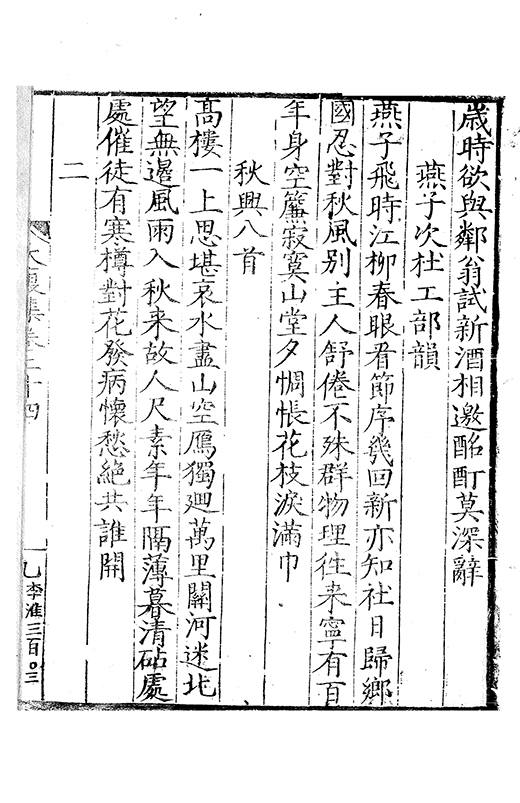 歲時欲與鄰翁試新酒相邀酩酊莫深辭
燕子次杜工部韻
燕子飛時江柳春眼看節序幾回新亦知社日歸鄉
國忍對秋風別主人舒倦不殊群物理往来寧有百
年身空簾寂寞山堂夕惆悵花枝淚滿巾
秋興八首
高樓一上思堪哀水盡山空鴈獨廻萬里關河迷北
望無邊風雨入秋来故人尺素年年隔薄暮清砧處
處催徒有寒樽對花發病懷愁絶共誰開
二
大復集卷二十四
李淮三百〇三